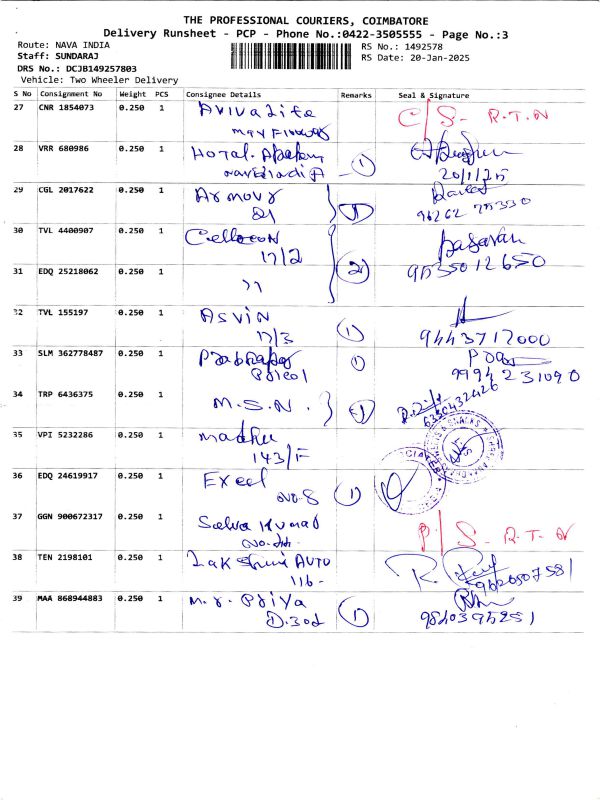 THE PROFESSIONAL COURIERS, COIMBATORE
Delivery Runsheet - PCP - Phone No.:0422-3505555 - Page No.:3
Route: NAVA INDIA
RS No.: 1492578
Staff: SUNDARAJ
RS Date: 20-Jan-2025
DRS No.: DCJB149257803
Vehicle: Two Wheeler Delivery
S No Consignment No Weight PCS Consignee Details Remarks Seal & Signature
27 CNR 1854073 0.250 1 C/S- R.T.N
28 VRR 680986 0.250 1 Hotal. 1
20/1/25
29 CGL 2017622 0.250 1 Armour 1
21 96262 75330
30 TVL 4400907 0.250 1 Cellocon
17/2 2 9535012650
31 EDQ 25218062 0.250 1 ,,
32 TVL 155197 0.250 1 Asvin
17/3 1 9443717000
33 SLM 362778487 0.250 1 1
9994231090
34 TRP 6436375 0.250 1 M.S.N. 1 6380432426
35 VPI 5232286 0.250 1 madhu
143/F
36 EDQ 24619917 0.250 1 Excel
No.8 1
37 GGN 900672317 0.250 1 Selva Kumar P/S- R.T.N
38 TEN 2198101 0.250 1 Lakshmi Auto
116- 9626507581
39 MAA 868944883 0.250 1 m.r. Priya
D.302 1 9840395251